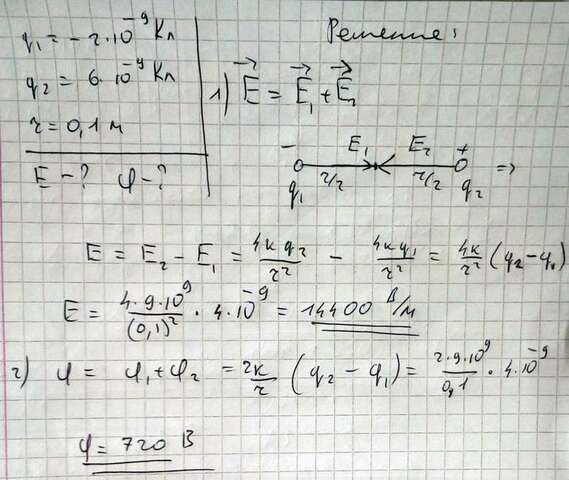 q₁ = -2·10⁻⁹ Кл
q₂ = 6·10⁻⁹ Кл
r = 0,1 м
E - ? φ - ?
Решение:
1) E⃗ = E⃗₁ + E⃗₂
- E₁ E₂ +
q₁ r/2 r/2 q₂ ⇒
E = E₂ - E₁ = 4kq₂/r² - 4kq₁/r² = 4k/r² (q₂ - q₁)
E = 4·9·10⁹/(0,1)² · 4·10⁻⁹ = 14400 В/м
2) φ = φ₁ + φ₂ = 2k/r (q₂ - q₁) = 2·9·10⁹/0,1 · 4·10⁻⁹
φ = 720 В